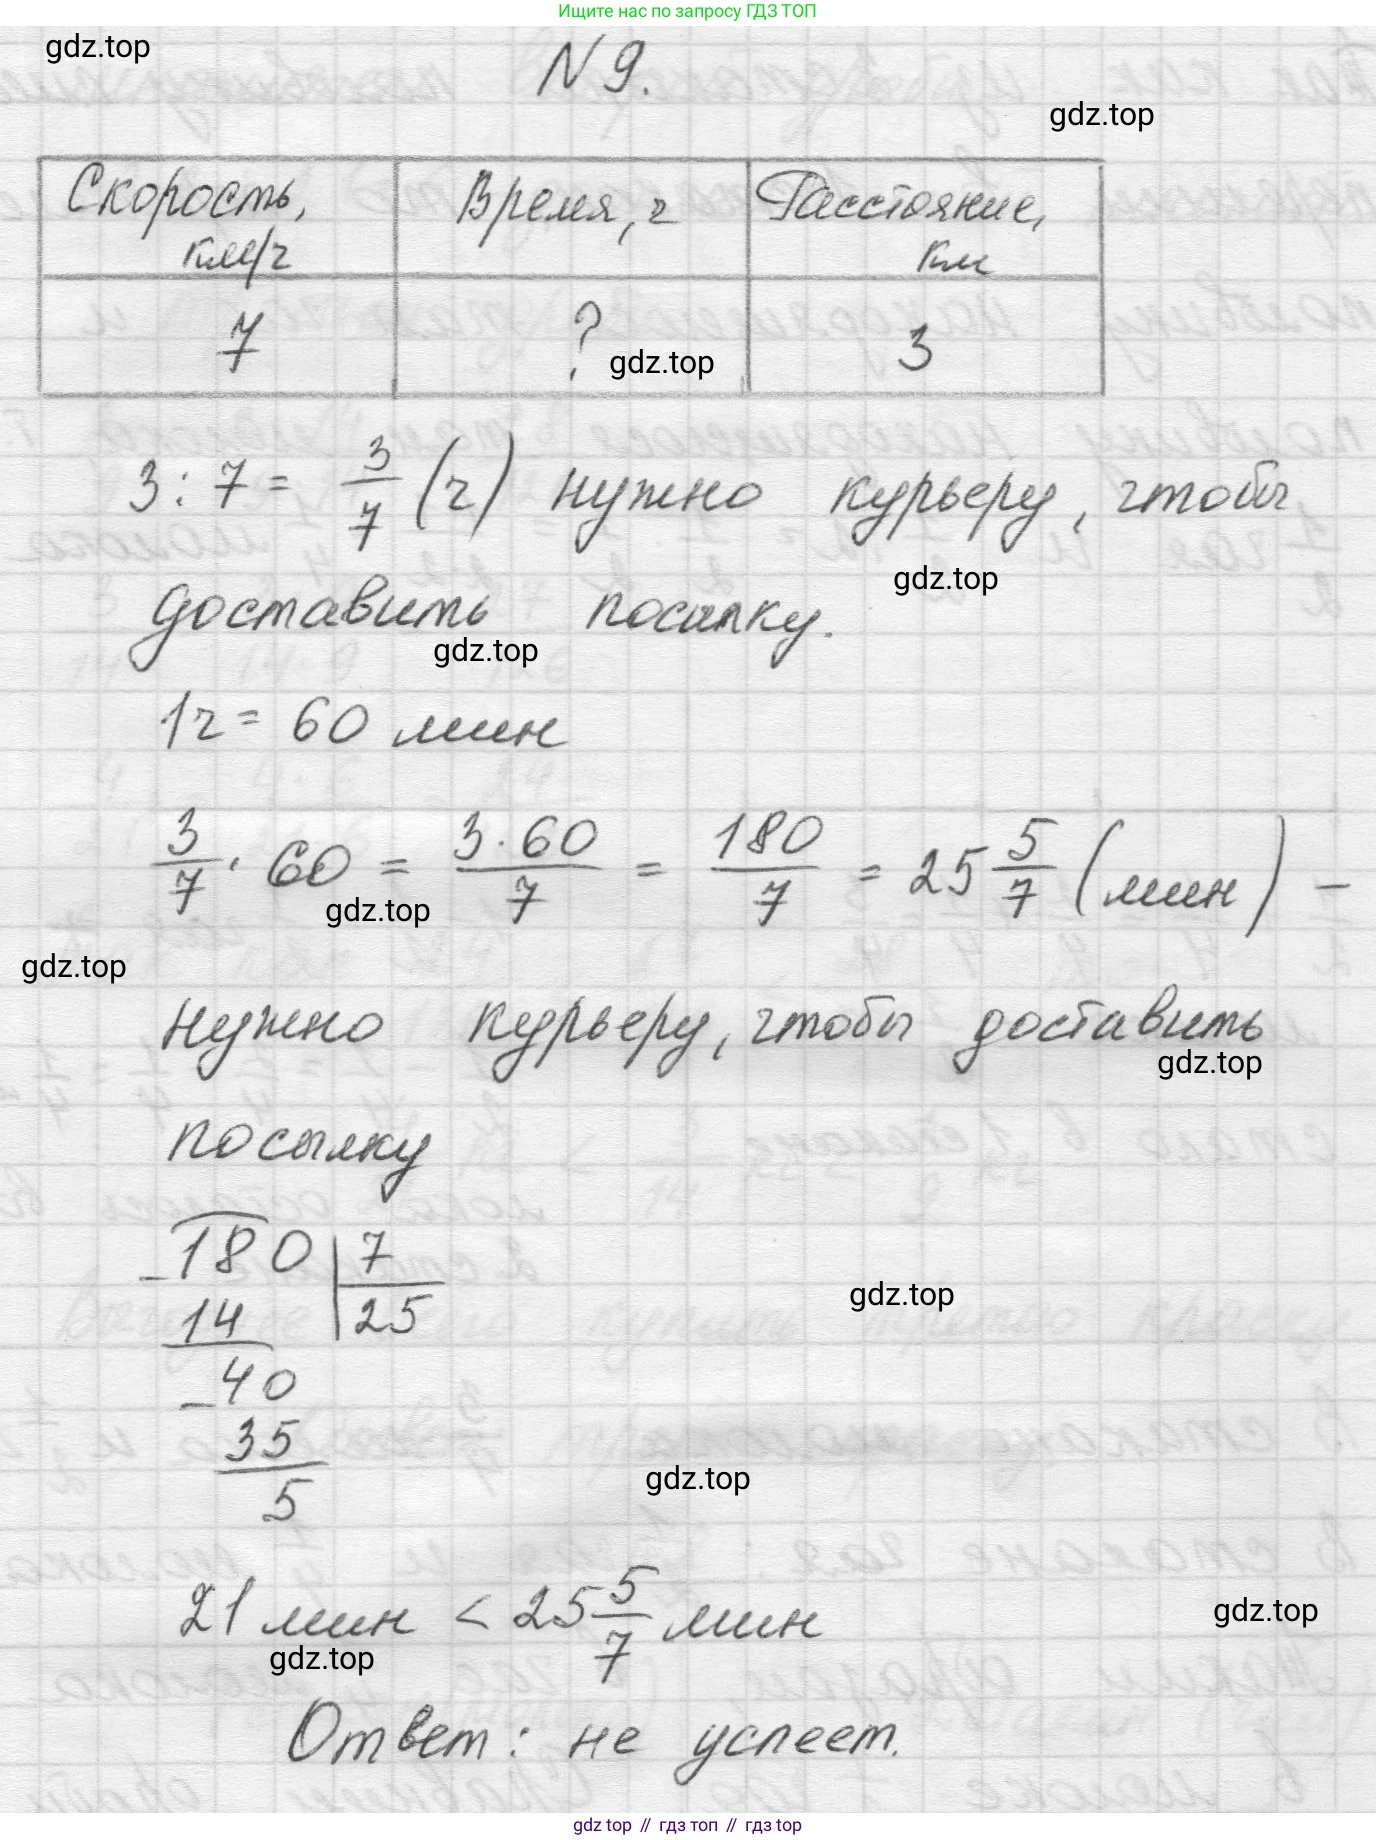 Ищите нас по запросу ГДЗ ТОП
gdz.top
N 9.
gdz.top
Скорость, км/ч
Время, ч
Расстояние, км
7
?
3
gdz.top
3 : 7 = 3/7 (ч) нужно курьеру, чтобы
gdz.top
доставить посылку.
gdz.top
1ч = 60 мин
3/7 · 60 = 3·60/7 = 180/7 = 25 5/7 (мин) –
gdz.top
gdz.top
нужно курьеру, чтобы доставить
gdz.top
посылку
180 | 7
14 | 25
gdz.top
40
35
gdz.top
5
21 мин < 25 5/7 мин
gdz.top
gdz.top
Ответ: не успеет.
gdz.top // гдз топ // гдз top